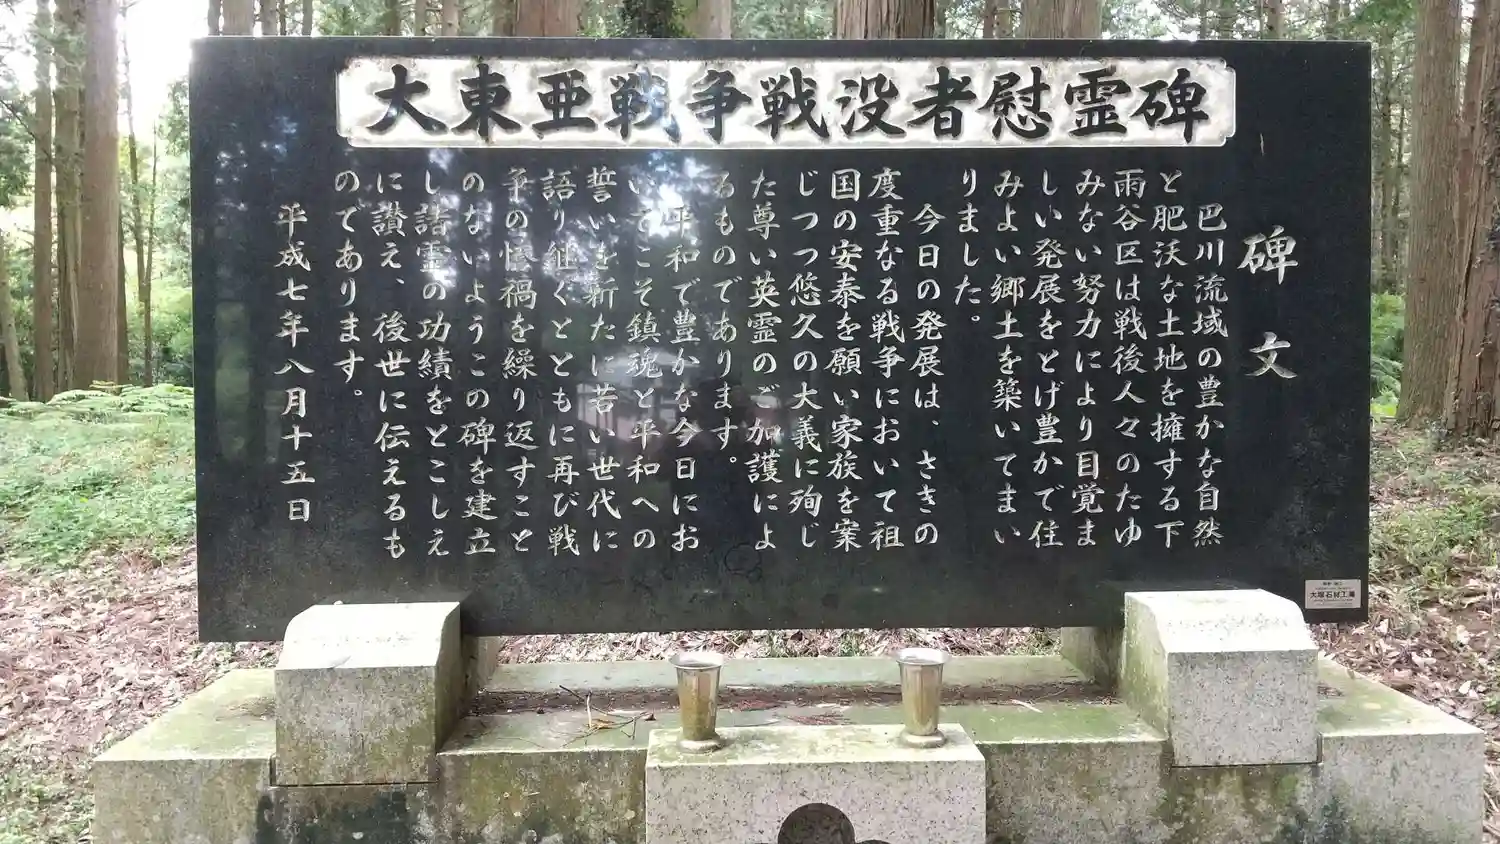 大東亜戦争戦没者慰霊碑
碑文
巴川流域の豊かな自然
と肥沃な土地を擁する下
雨谷区は戦後人々のたゆ
みない努力により目覚ま
しい発展をとげ豊かで住
みよい郷土を築いてまい
りました。
今日の発展は、さきの
度重なる戦争において祖
国の安泰を願い家族を案
じつつ悠久の大義に殉じ
た尊い英霊のご加護によ
るものであります。
平和で豊かな今日にお
いてこそ鎮魂と平和への
誓いを新たに若い世代に
語り継ぐとともに再び戦
争の惨禍を繰り返すこと
のないようこの碑を建立
し諸霊の功績をとこしえ
に讃え、後世に伝えるも
のであります。
平成七年八月十五日
大塚石材工業